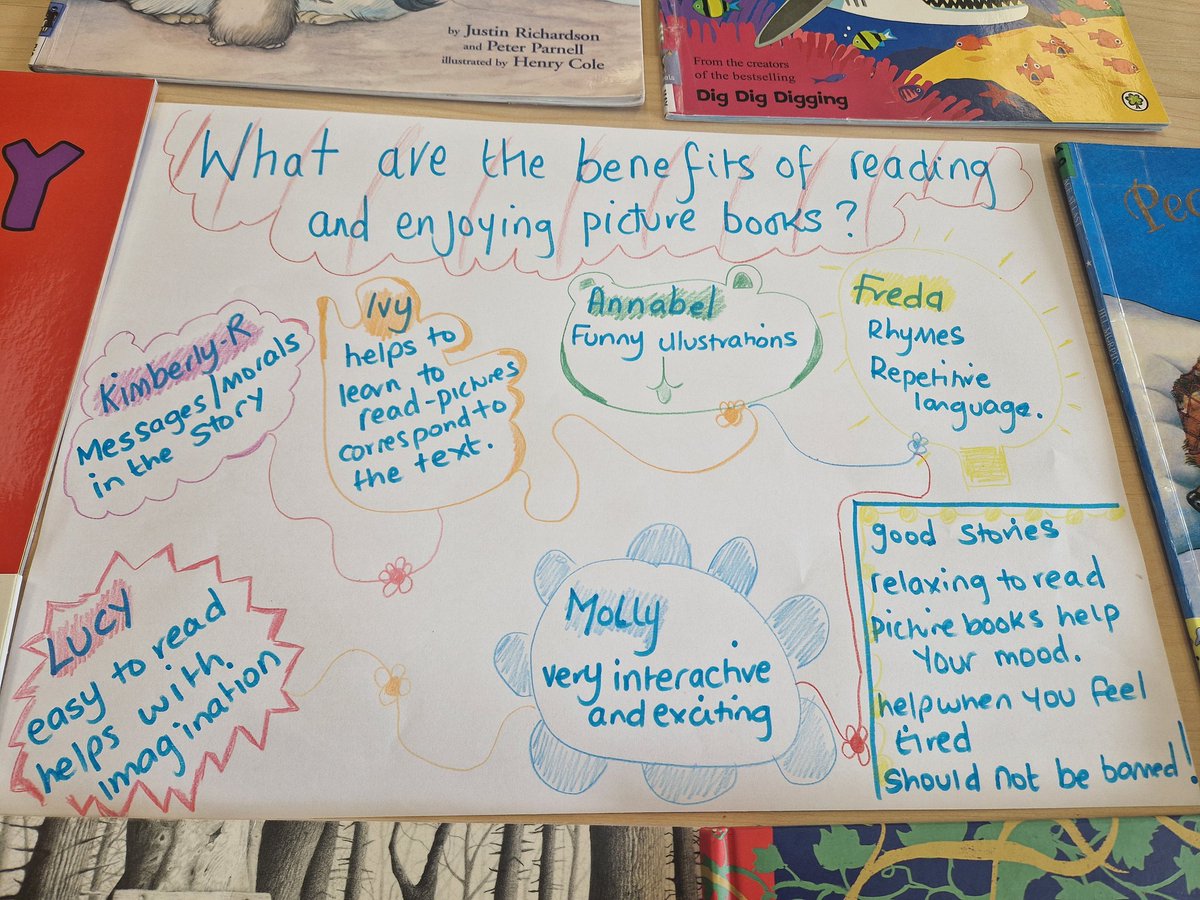 by Justin Richardson
and Peter Parnell
illustrated by Henry Cole
From the creators
of the bestselling
Dig Dig Digging
Y
What are the benefits of reading
and enjoying picture books?
Kimberly-R
Messages/morals
in the story
Ivy
helps to
learn to
read-pictures
correspond to
the text.
Annabel
Funny illustrations
Freda
Rhymes
Repetitive
language.
LUCY
easy to read
helps with.
imagination
Molly
very interactive
and exciting
good stories
relaxing to read
picture books help
your mood.
help when you feel
tired
should not be banned!